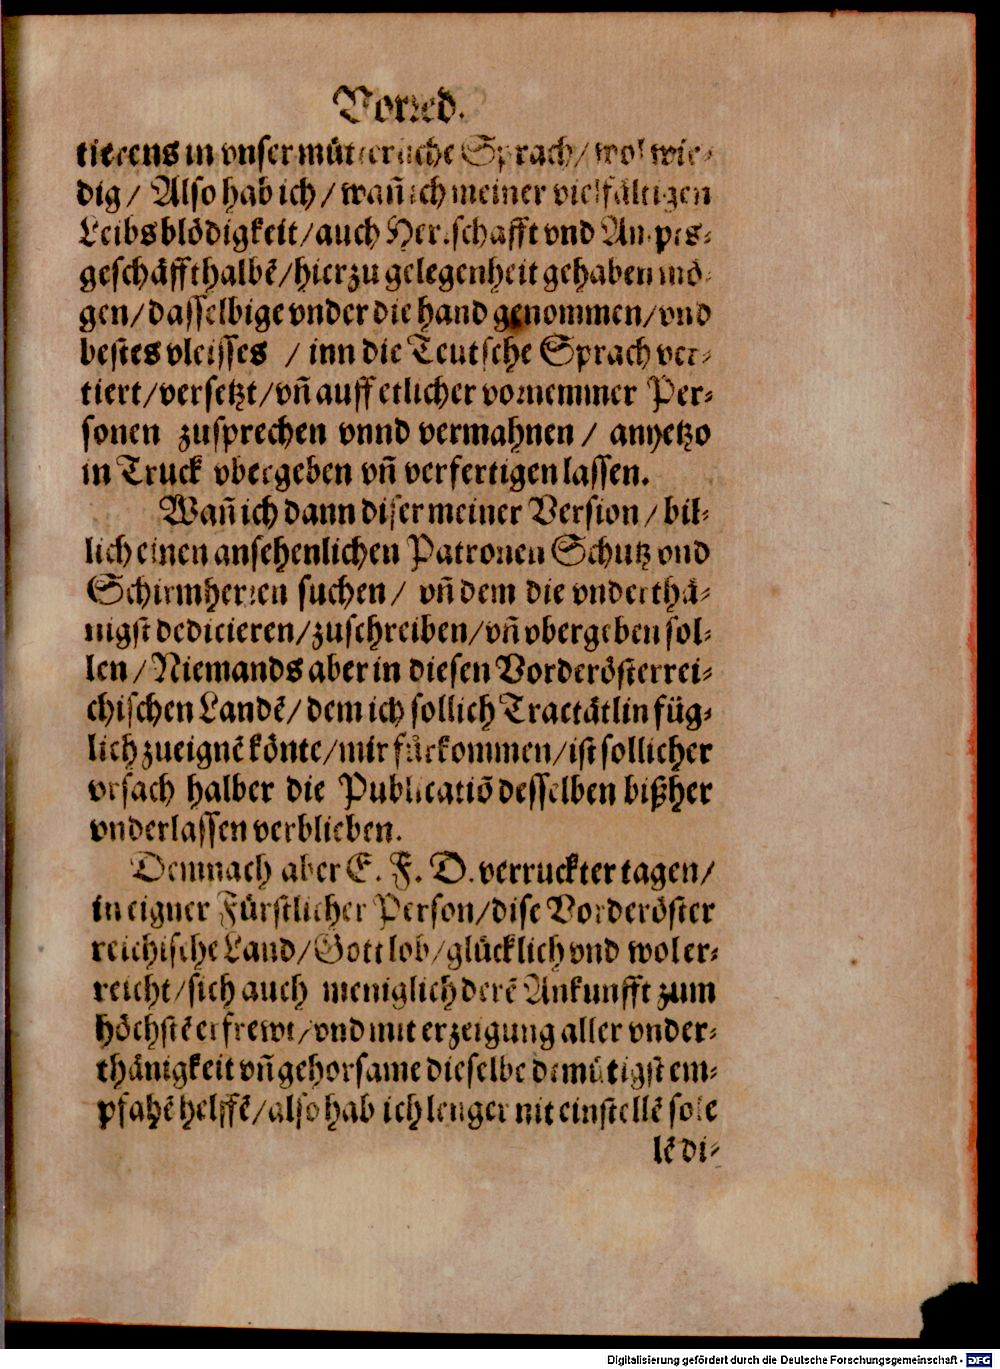 Vorꝛed.
tierens in vnser mütterliche Sprach/ wol wir⸗
dig/ Also hab ich/ wañ ich meiner vielfältigen
Leibsblödigkeit/ auch Her.schafft vnd Ampts⸗
geschäffthalbẽ/ hierzu gelegenheit gehaben mö⸗
gen/ dasselbige vnder die hand genommen/ vnd
bestes vleisses / inn die Teutsche Sprach ver⸗
tiert/ versetzt/ vñ auff etlicher voꝛnemmer Per⸗
sonen zusprechen vnnd vermahnen/ anyetzo
in Truck vbergeben vñ verfertigen lassen.
Wañ ich dann diser meiner Version/ bil⸗
lich einen ansehenlichen Patronen Schutz vnd
Schirmherꝛen suchen/ vñ dem die vnderthä⸗
nigst dedicieren/ zuschreiben/ vñ vbergeben sol⸗
len/ Niemands aber in diesen Vorderösterrei⸗
chischen Landẽ/ dem ich sollich Tractätlin füg⸗
lich zueignẽ könte/ mir fürkommen/ ist sollicher
vrsach halber die Publicatiõ desselben bißher
vnderlassen verblieben.
Demnach aber E. F. D. verruckter tagen/
in eigner Fürstlicher Person/ dise Vorderöster
reichische Land/ Gott lob/ glücklich vnd wol er⸗
reicht/ sich auch meniglich derẽ Ankunfft zum
höchstẽ erfrewt/ vnd mit erzeigung aller vnder⸗
thänigkeit vñ gehorsame dieselbe demütigst em⸗
pfahẽ helffẽ/ also hab ich lenger nit einstellẽ sole
lẽ di⸗
Digitalisierung gefördert durch die Deutsche Forschungsgemeinschaft - DFG